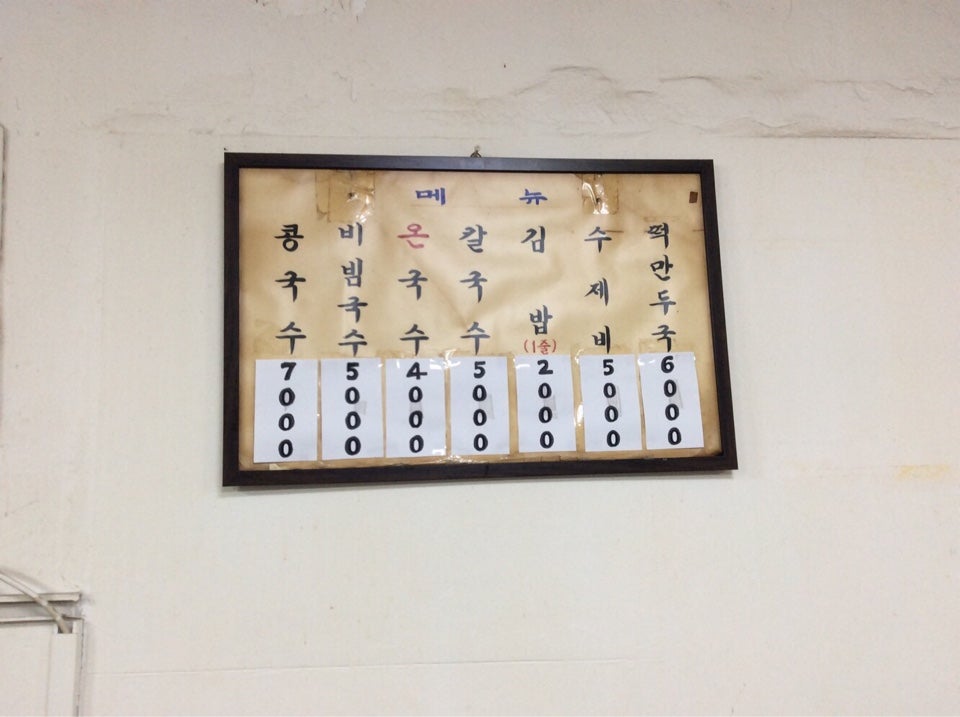 메뉴
콩국수 7000
비빔국수 5000
온국수 4000
칼국수 5000
김밥 (1줄) 2000
수제비 5000
떡만두국 6000